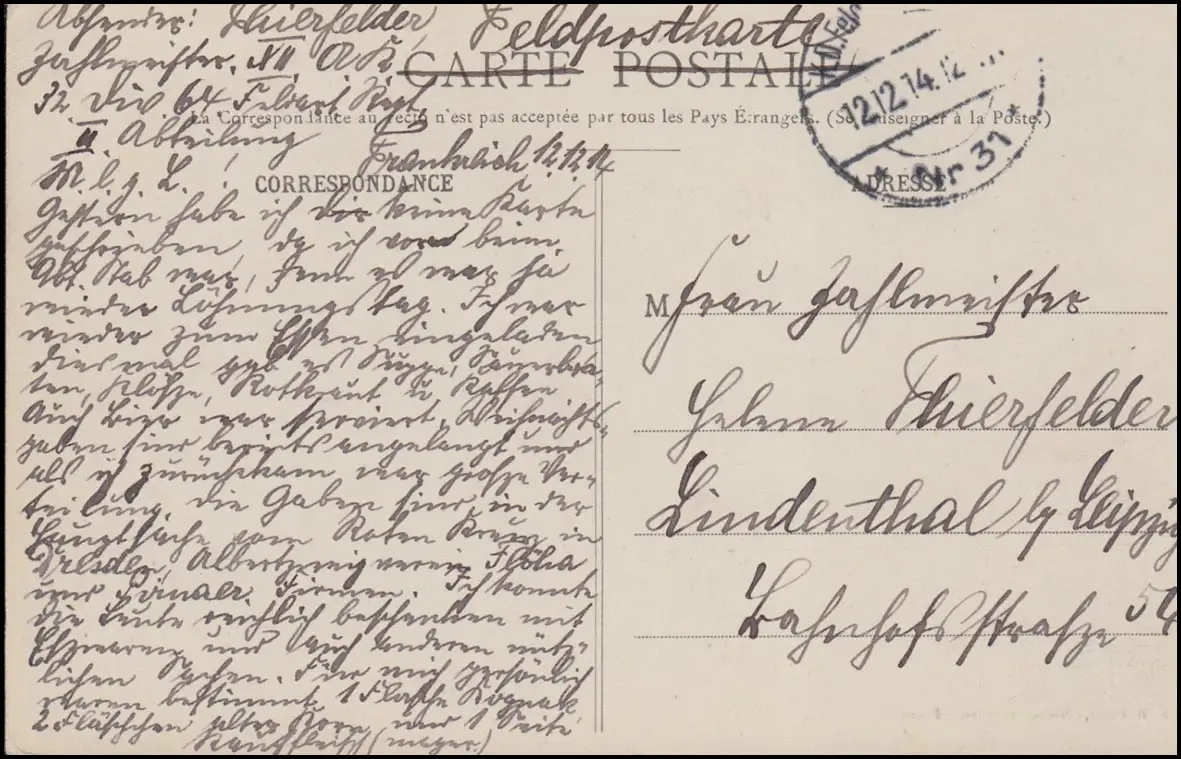 Absender: Thierfelder,
Zahlmeister. XII AK
32. Div 64 Feldart Regt.
II Abteilung
Feldpostkarte
CARTE POSTALE
La Correspondance au recto n'est pas acceptée par tous les Pays Étrangers. (Se renseigner à la Poste.)
12.12.14.12
* Nr 31 *
Frankreich 12.12.14
M. l. g. L. !
CORRESPONDANCE
Gestern habe ich dir keine Karte
geschrieben, da ich vorm beim
Abt. Stab war, denn es war ja
wieder Löhnungstag. Ich war
wieder zum Essen eingeladen
diesmal gab es Suppe, Sauerbra-
ten, Klösze, Rotkraut u.
Auch Bier war serviert. Weihnachts-
gaben sind bereits angelangt und
als ich zurückkam war grosze Ver-
teilung. Die Gaben sind in der
Hauptsache vom Roten Kreuz in
Dresden, Albertzweigverein Flöha
und Firmen. Ich konnte
die Leute reichlich beschenken mit
Eszwaren und auch anderen nütz-
lichen Sachen. Für mich persönlich
waren bestimmt 1 Flasche Kognak
2 Fläschchen alter Korn und 1 Seite
Rauchfleisch (mager.)
ADRESSE
M Frau Zahlmeister
Helene Thierfelder
Lindenthal b/ Leipzig
Bahnhofsstrasze 54